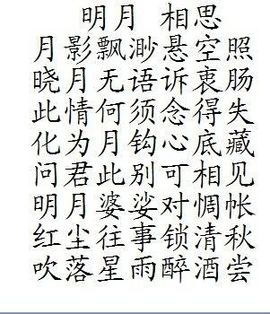 明月 相思
月影飘渺悬空照
晓月无语诉衷肠
此情何须念得失
化为月钩心底藏
问君此别可相见
明月婆娑对惆帐
红尘往事锁清秋
吹落星雨醉酒尝